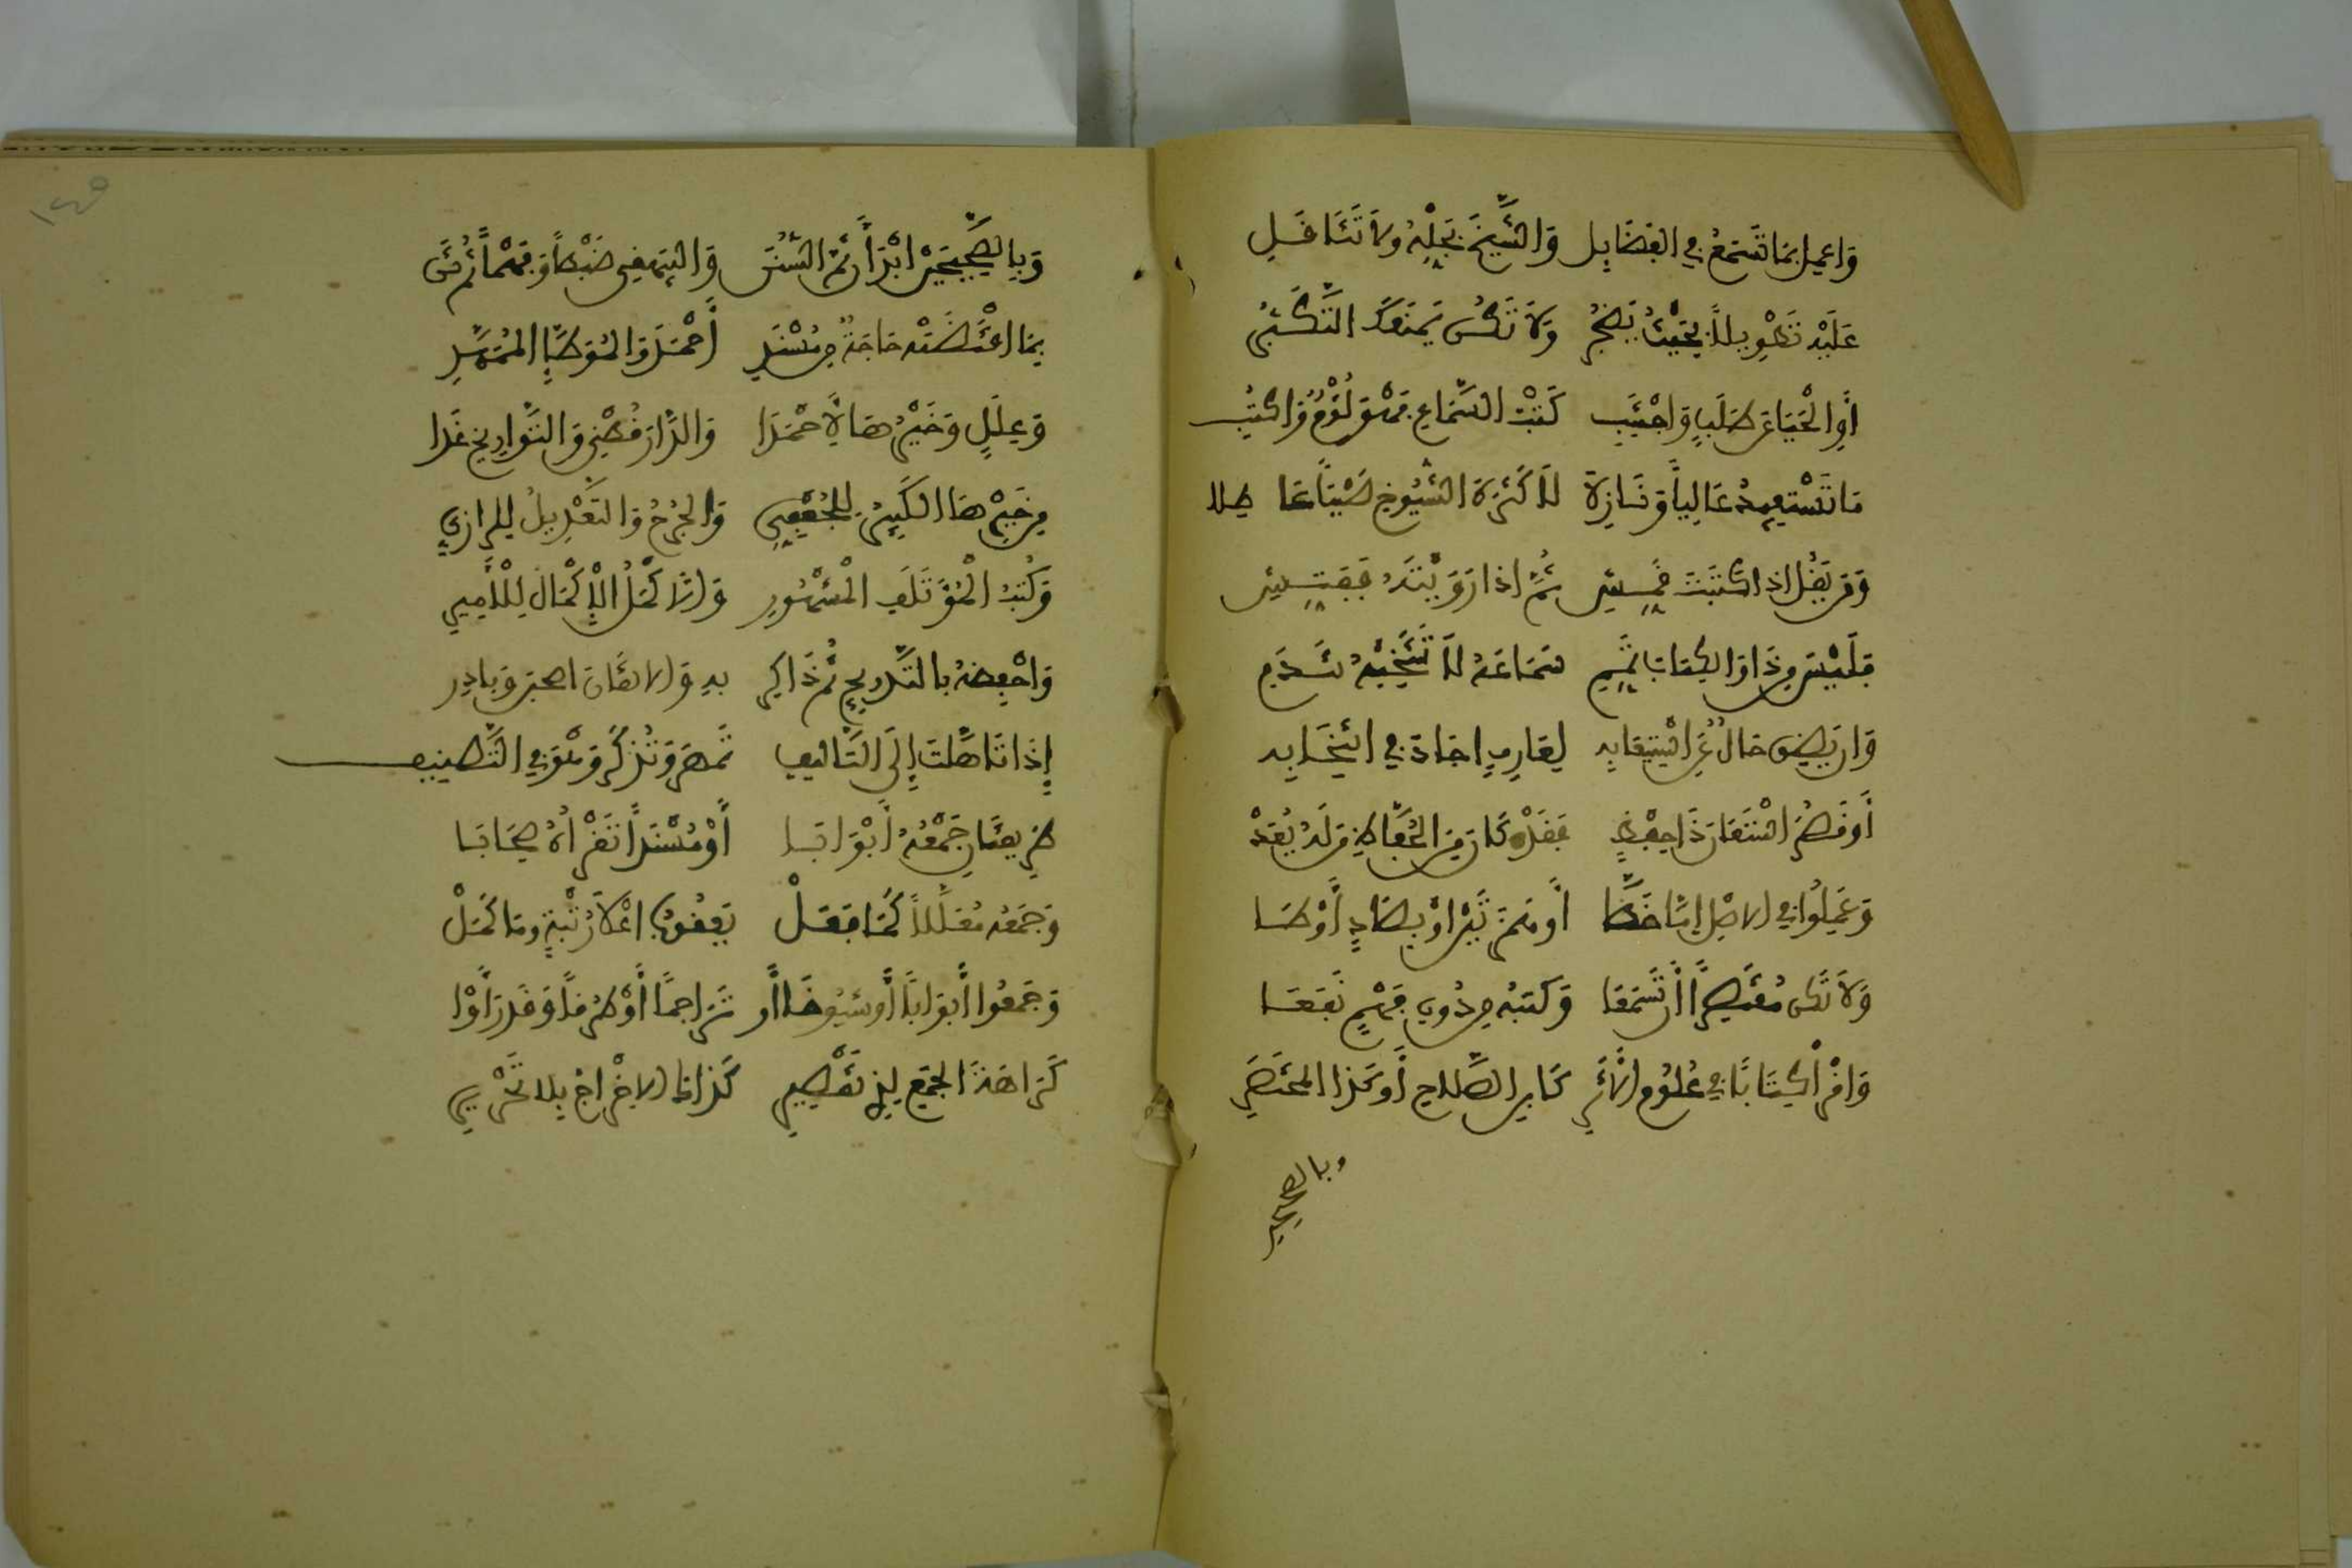 وَاعمل بمَا تَسْمَعُ في الفضَايل وَالشَّيخَ بَجِّلْهُ وَلاَ تَثَاقَلِ
عَلَيْهِ تَطْوِيلاً بِحَيْثُ يَضْجُرُ وَلاَ تَكُن يَمْنَعُكَ التَّكَبُّرُ
أَوِ الْحَيَا عَن طَلَبٍ وَاجْتَنِبِ كَتْمَ السَّمَاعِ فَهْوَ لُؤْمٌ وَاكْتُبِ
مَا تَسْتَفِيدُ عَالِياً وَنَازِلا لاَ كَثْرَةَ الشُّيُوخِ صِيْتاً عَا طِلا
وَمَن يَقُل اذا كَتَبْتَ قَمِّشِ ثُمَّ اذا رَوَيْتَهُ فَفَتِّشِ
فَلَيْسَ مِن ذَا وَالكِتَابَ تَمِّمِ سَمَاعَهُ لاَ تَنْتَخِبْهُ تَنْدَمِ
وَان يَضِق حَالٌ عَنِ اسْتِيعَابِهِ لِعَارِفٍ اجَادَ في انْتِخَابِهِ
أَو قَصُرَ اسْتَعَانَ ذَا حِفْظٍ فَقَدْ كَانَ مِنَ الحُفَّاظِ مَن لَهُ يُعَدْ
وَعَلَّمُوا في الاصْلِ إمَّا خَطَّا أَو هَمْزَتَيْنِ اوْ بِصَادٍ أَوْ طَا
وَلاَ تَكُن مُقْتَصِراً أَن تَسْمَعَا وَكَتْبَهُ مِن دُونِ فَهْمٍ نَفَعَا
وَاقْرَأْ كِتَاباً في عُلُومِ الأَثَرِ كَابنِ الصَّلاحِ أَو كَذَا المختَصَرِ
وبالصحيحين
١٤٥
وَبِالصَّحِيحَيْنِ ابْدَأَن ثُمَّ السُّنَن وَالبَيْهَقِي ضَبْطاً وَفَهْماً ثُمَّ ثَنْ
بِمَا اقْتَضَتْهُ حَاجَةٌ مِن مُسْنَدِ أَحْمَدَ وَالمُوَطَّإِ المُمَهَّدِ
وَعِلَلٍ وَخَيْرُهَا لأَحْمَدَا وَالدَّارَقُطْنِي وَالتَّوَارِيخِ غَدَا
مِن خَيْرِهَا الكَبِيرُ لِلْجُعْفِيِّ وَالجَرْحُ وَالتَّعْدِيلُ لِلرازِيِّ
وَكُتُبُ الْمُؤْتَلِفِ الْمَشْهُورِ وَالأَكْمَلُ الإِكْمَالُ لِلأَمِيرِ
وَاحْفَظْهُ بِالتَّدْرِيجِ ثُمَّ ذَاكِرِ بِهِ وَالاتقَانَ اصحبَن وَبادِرِ
إِذَا تَأَهَّلْتَ إِلَى التَّأليفِ تَمْهَرْ وَتُذْكَرْ وَهْوَ في التَّصنِيف
طَرِيقَتَانِ جَمْعُهُ أَبْوَابَا أَوْ مُسْنَداً تُفْرِدُهُ صِحَابَا
وَجَمْعُهُ مُعَلَّلاً كَمَا فَعَلْ يَعْقُوبُ اعْلاَ رُتْبَةٍ وَمَا كَمَلْ
وَجَمَعُوا أَبوَاباً أَو شُيُوخاً أَو تَرَاجِماً أَوْ طُرُقاً وَقَد رَأَوْا
كَرَاهَةَ الجَمْعِ لِذِي تَقْصِيرِ كَذاكَ الاخْرَاجُ بِلا تَحْرِيرِ